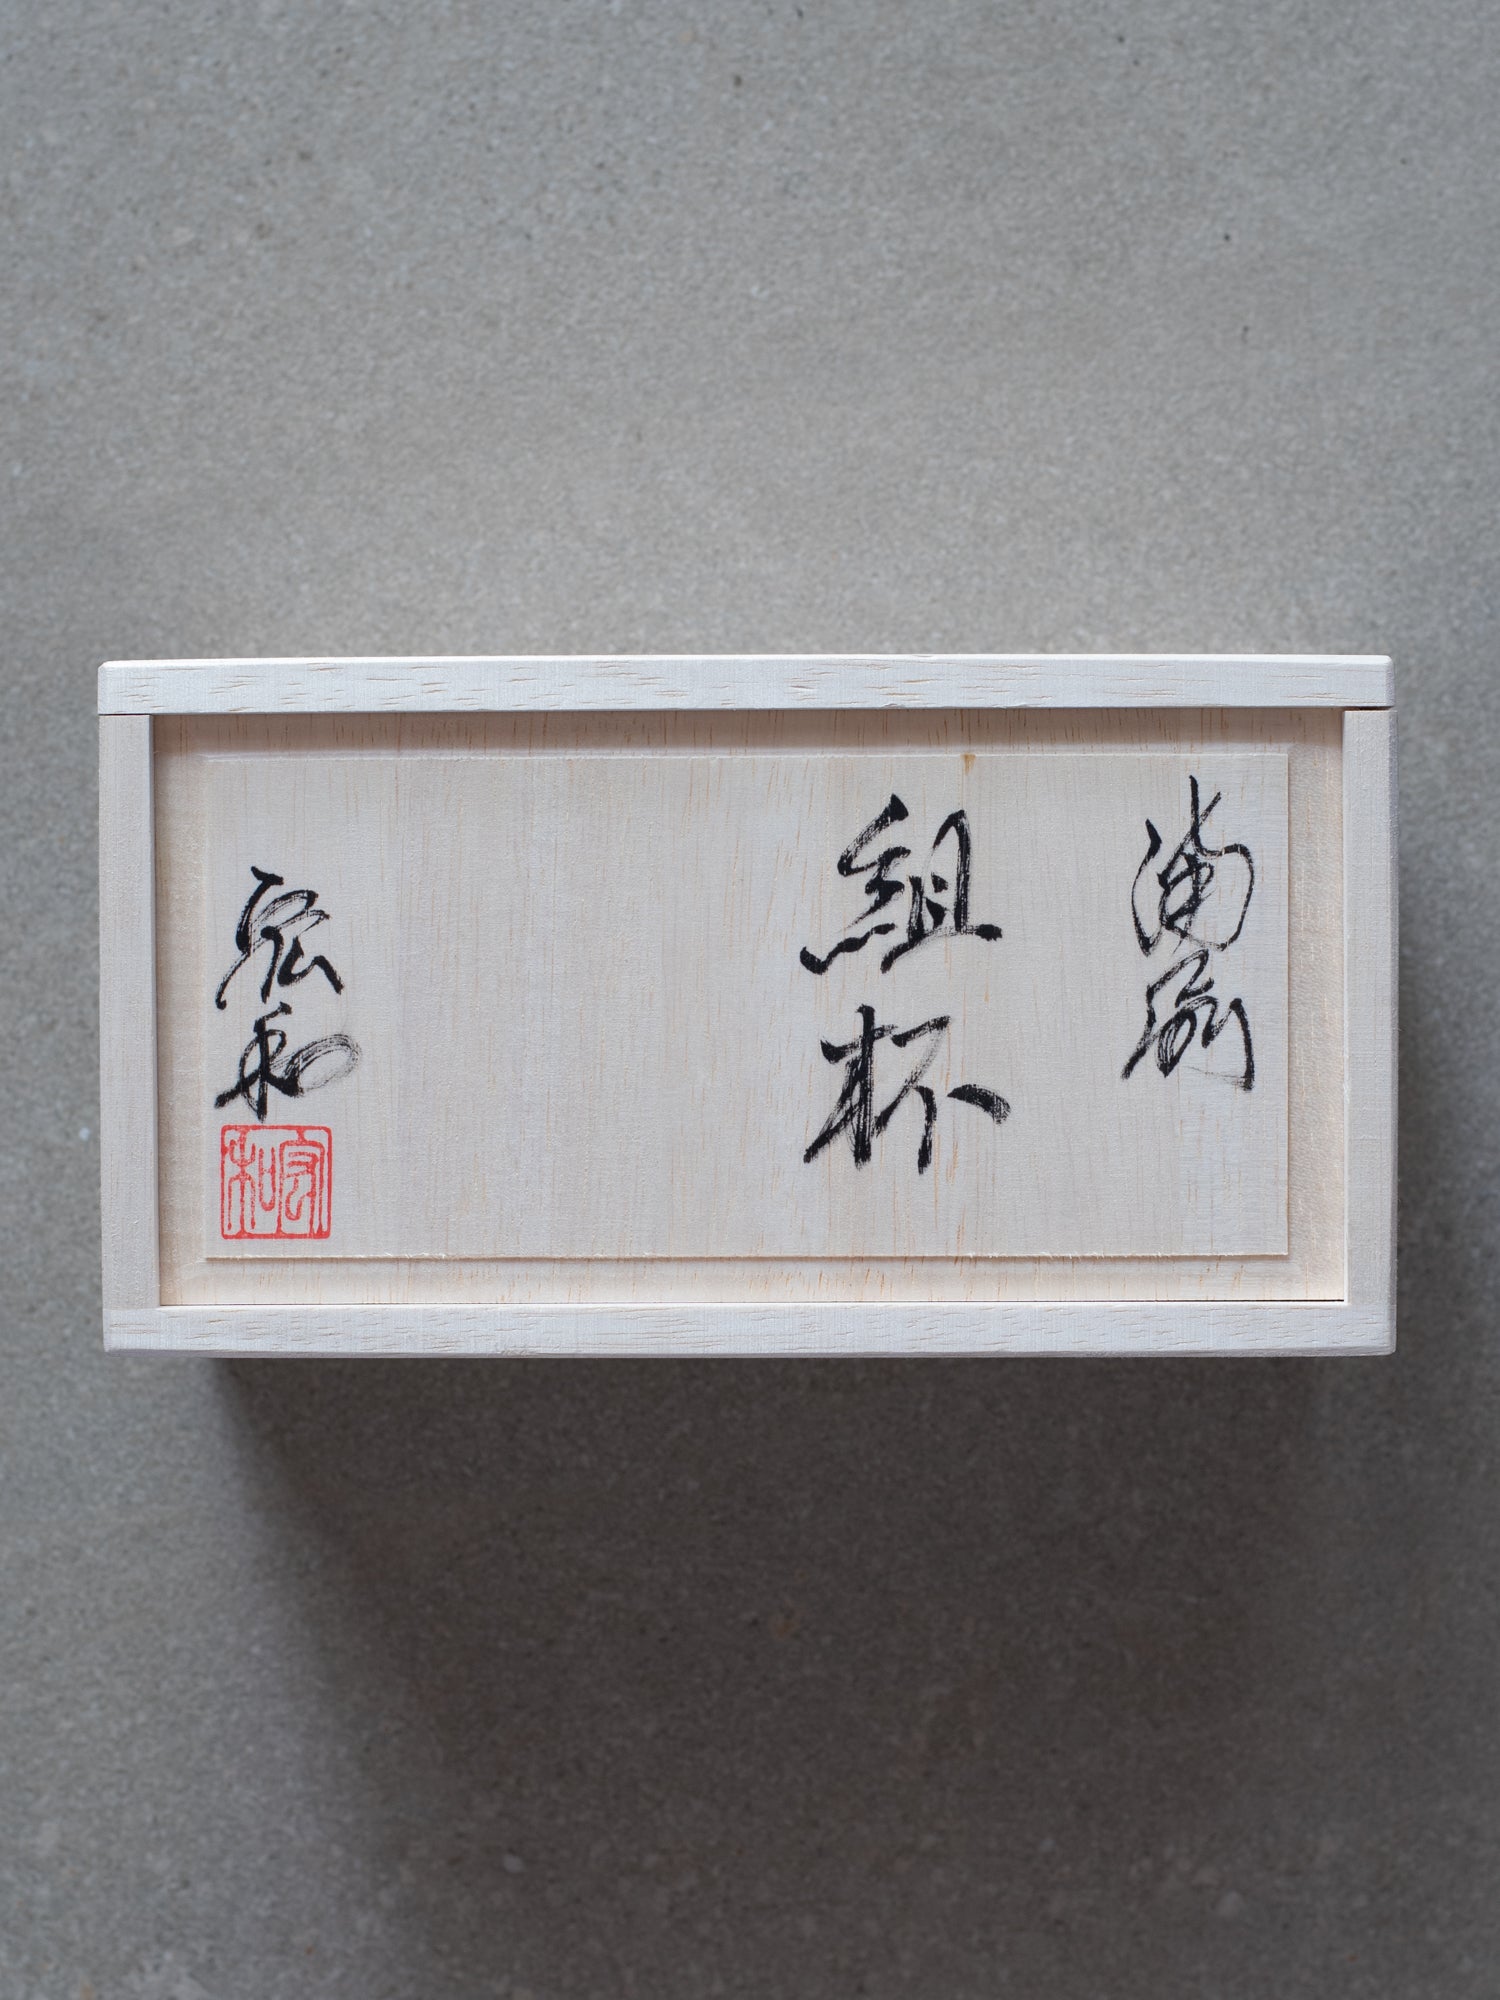 備前
組杯
宏和
宏和